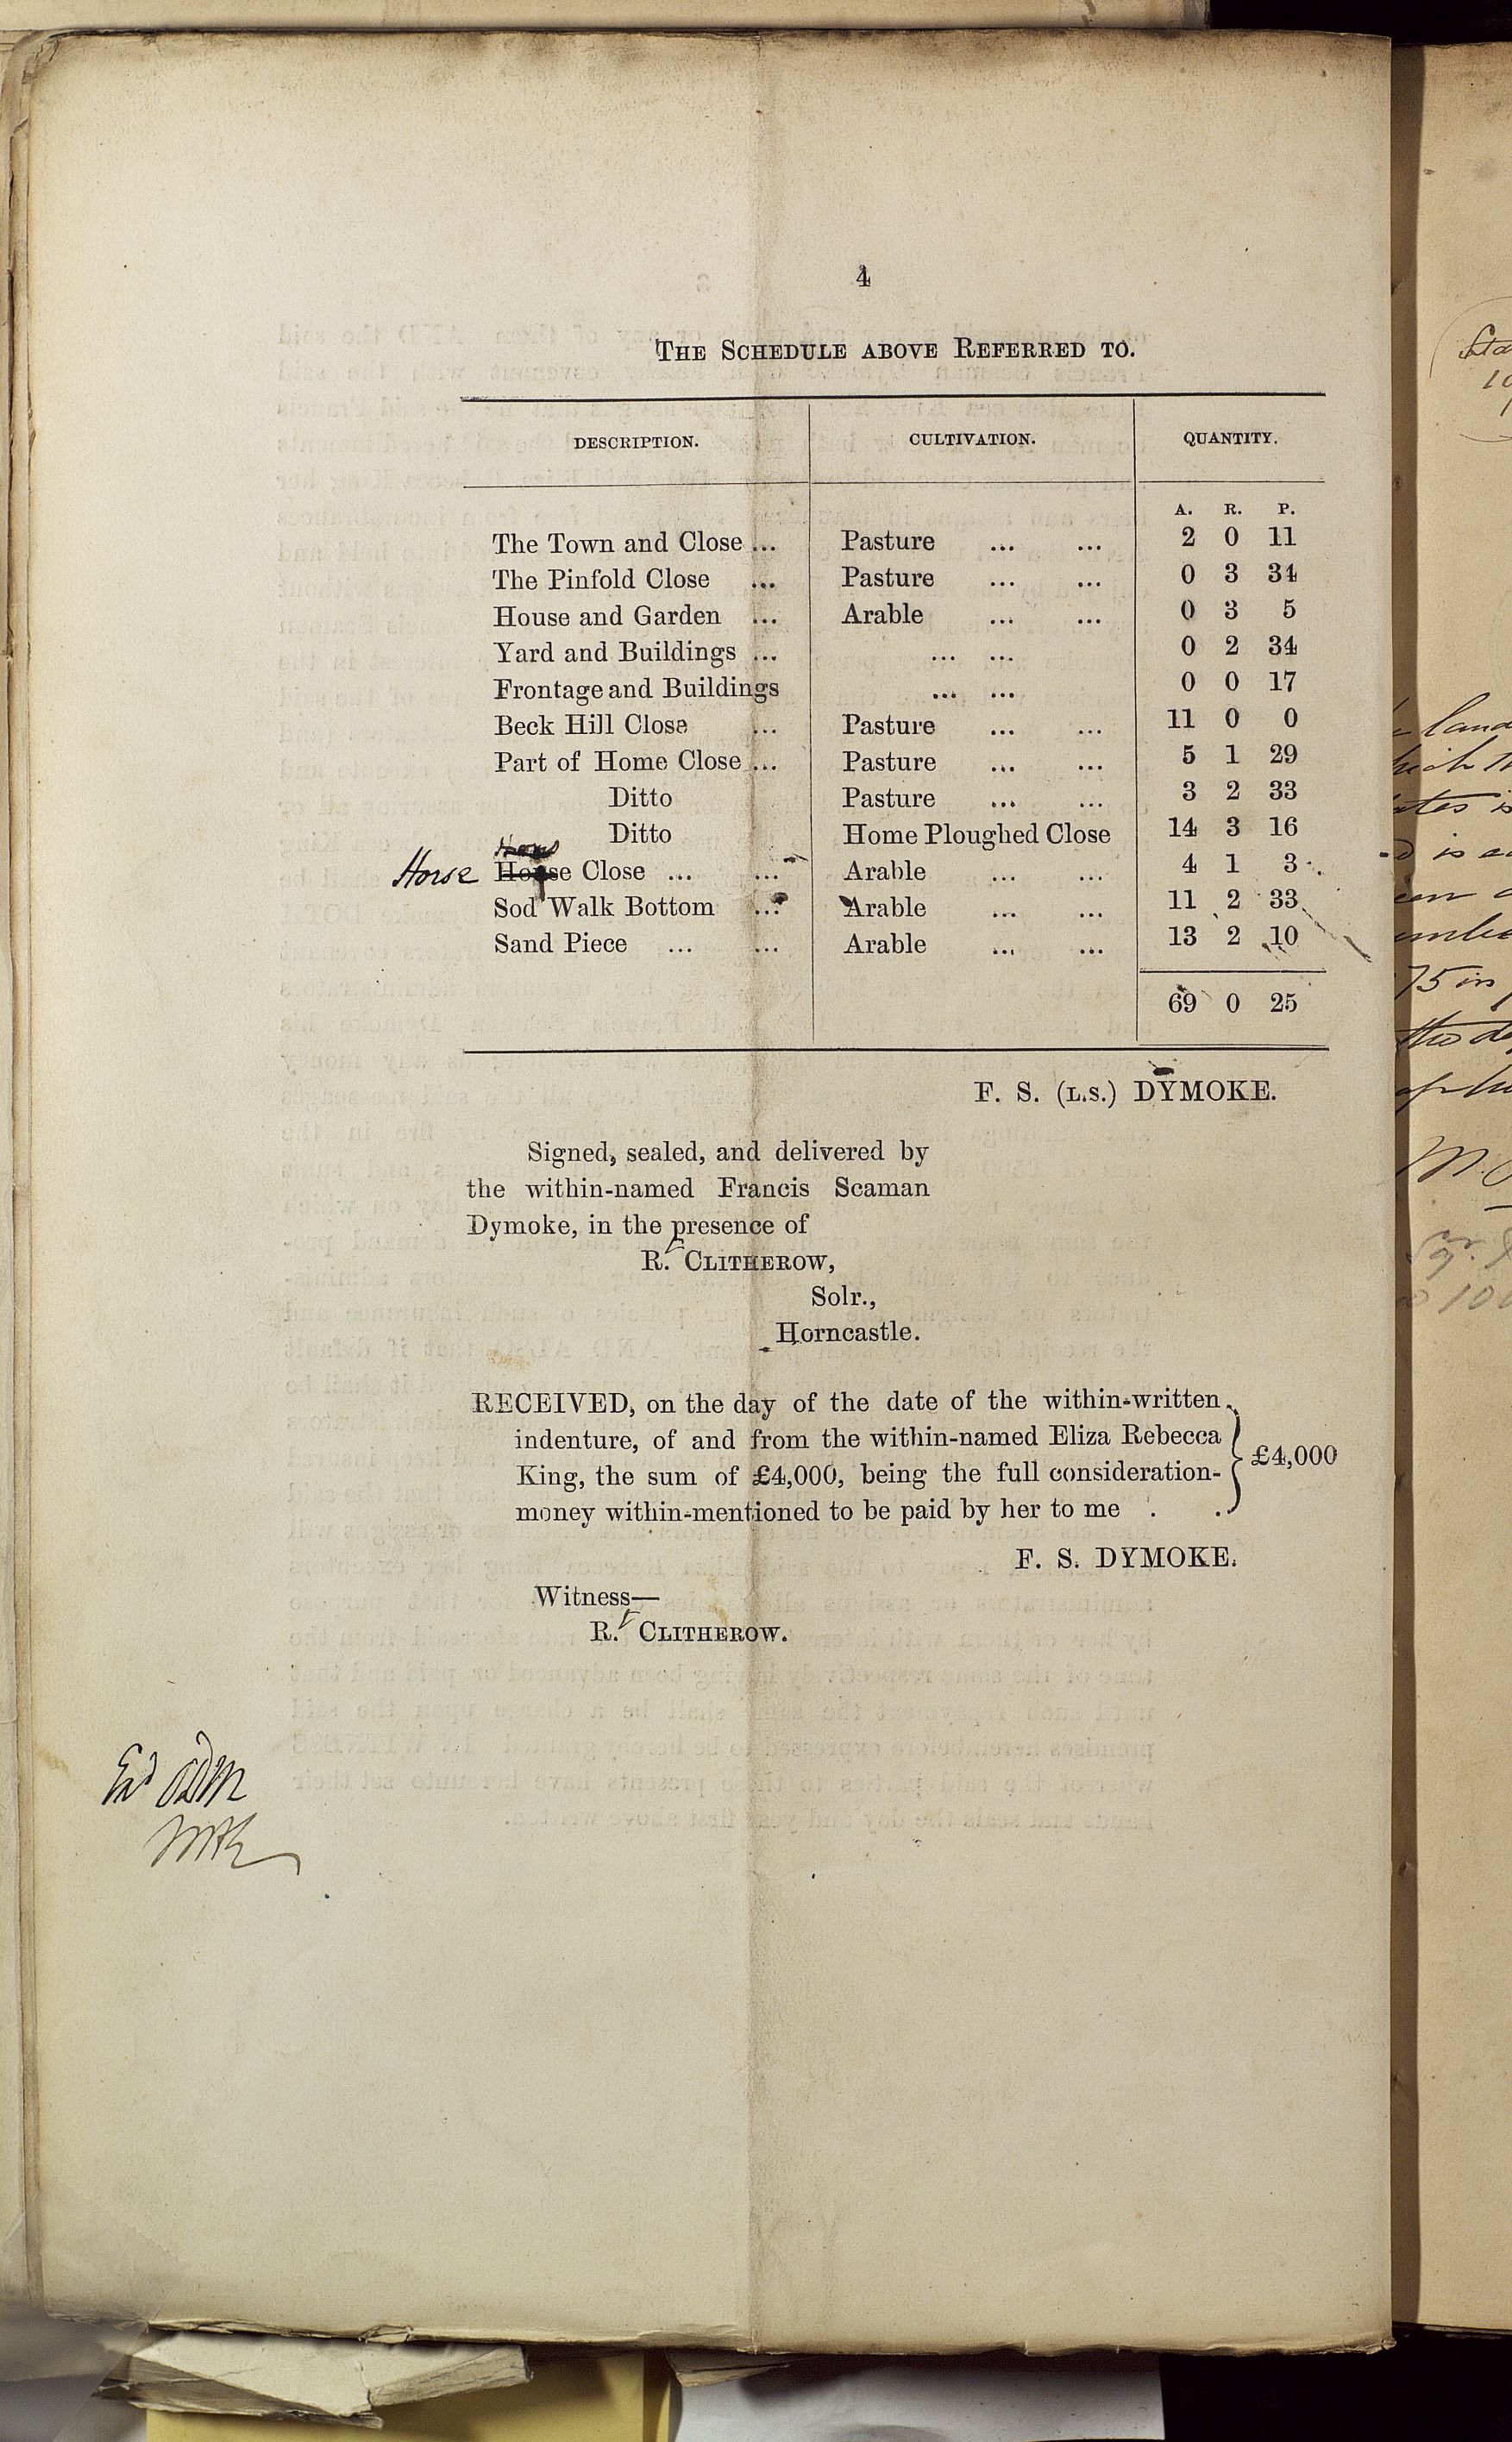 4
THE SCHEDULE ABOVE REFERRED TO.
DESCRIPTION. CULTIVATION. QUANTITY.
A. R. P.
The Town and Close ... Pasture ... ... 2 0 11
The Pinfold Close ... Pasture ... ... 0 3 34
House and Garden ... Arable ... ... 0 3 5
Yard and Buildings ... ... ... 0 2 34
Frontage and Buildings ... ... 0 0 17
Beck Hill Close ... Pasture ... ... 11 0 0
Part of Home Close ... Pasture ... ... 5 1 29
Ditto Pasture ... ... 3 2 33
Ditto Home Ploughed Close 14 3 16
Horse House Close ... ... Arable ... ... 4 1 3
Sod Walk Bottom ... Arable ... ... 11 2 33
Sand Piece ... ... Arable ... ... 13 2 10
69 0 25
F. S. (L.S.) DYMOKE.
Signed, sealed, and delivered by
the within-named Francis Scaman
Dymoke, in the presence of
R. CLITHEROW,
Solr.,
Horncastle.
RECEIVED, on the day of the date of the within-written
indenture, of and from the within-named Eliza Rebecca
King, the sum of £4,000, being the full consideration-
money within-mentioned to be paid by her to me . .
£4,000
F. S. DYMOKE.
Witness—
R. CLITHEROW.